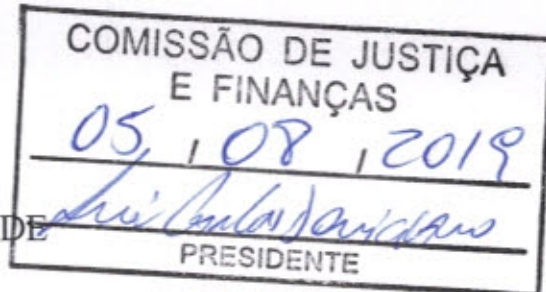 COMISSÃO DE JUSTIÇA
E FINANÇAS
05 / 08 / 2019
DE Luiz Carlos
PRESIDENTE